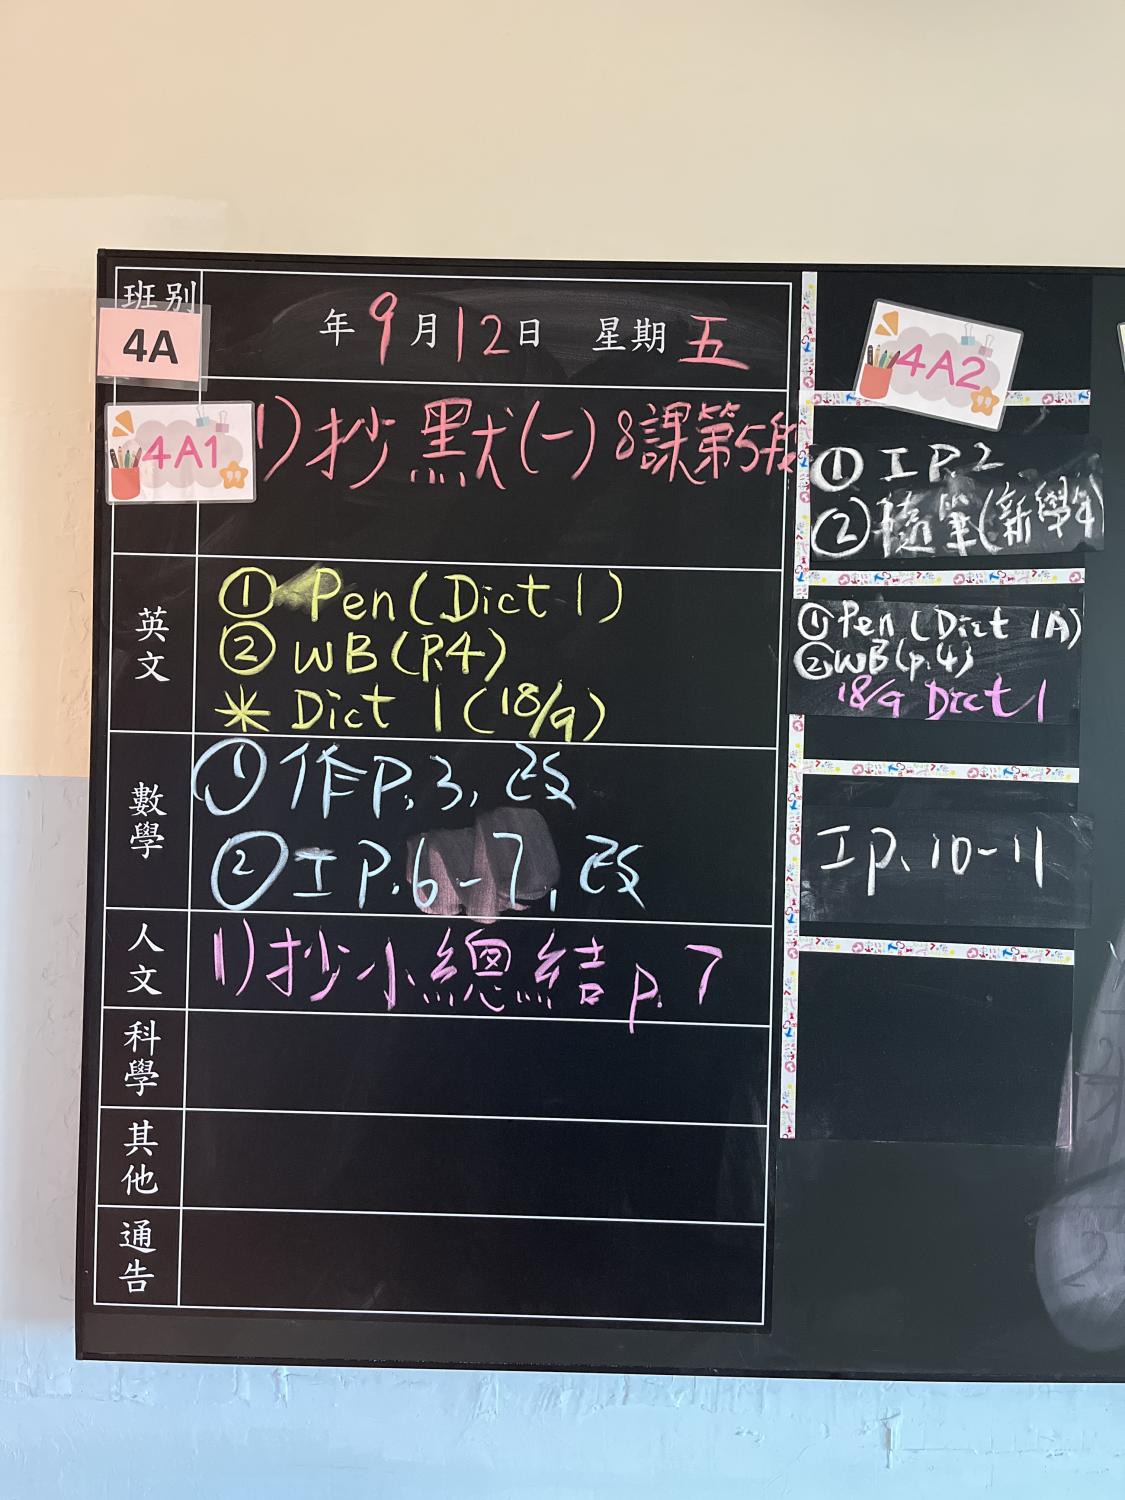 班別
4A
年9月12日 星期五
4A1
1)抄默(一)8課第5段
英文
① Pen (Dict 1)
② WB (P.4)
* Dict 1 (18/9)
數學
① 作P.3, 改
② 工 P.6-7, 改
人文
1)抄小總結 p.7
科學
其他
通告
4A2
① 工 P.2
② 隨筆(新學年)
① Pen (Dict 1A)
② WB (p.4)
18/9 Dict 1
工 p. 10-11